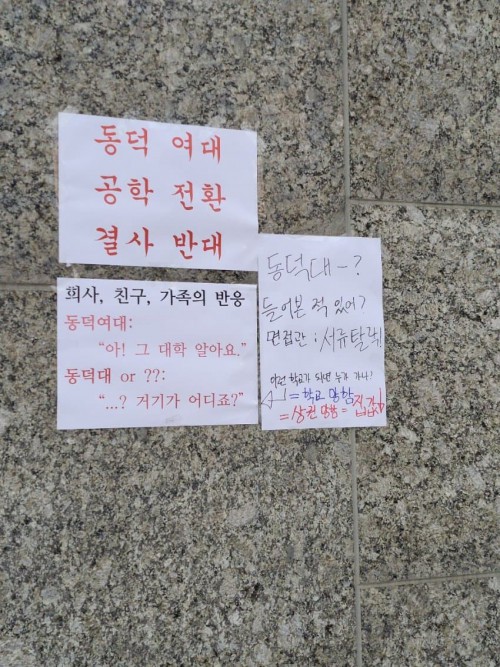 동덕 여대
공학 전환
결사 반대
회사, 친구, 가족의 반응
동덕여대:
“아! 그 대학 알아요.”
동덕대 or ??:
“...? 거기가 어디죠?”
동덕대-?
들어본 적 있어?
면접관 : 서류탈락!
이런 학교가 되면 누가 가나!
= 학교 망함
= 상권 망함 = 집값↓